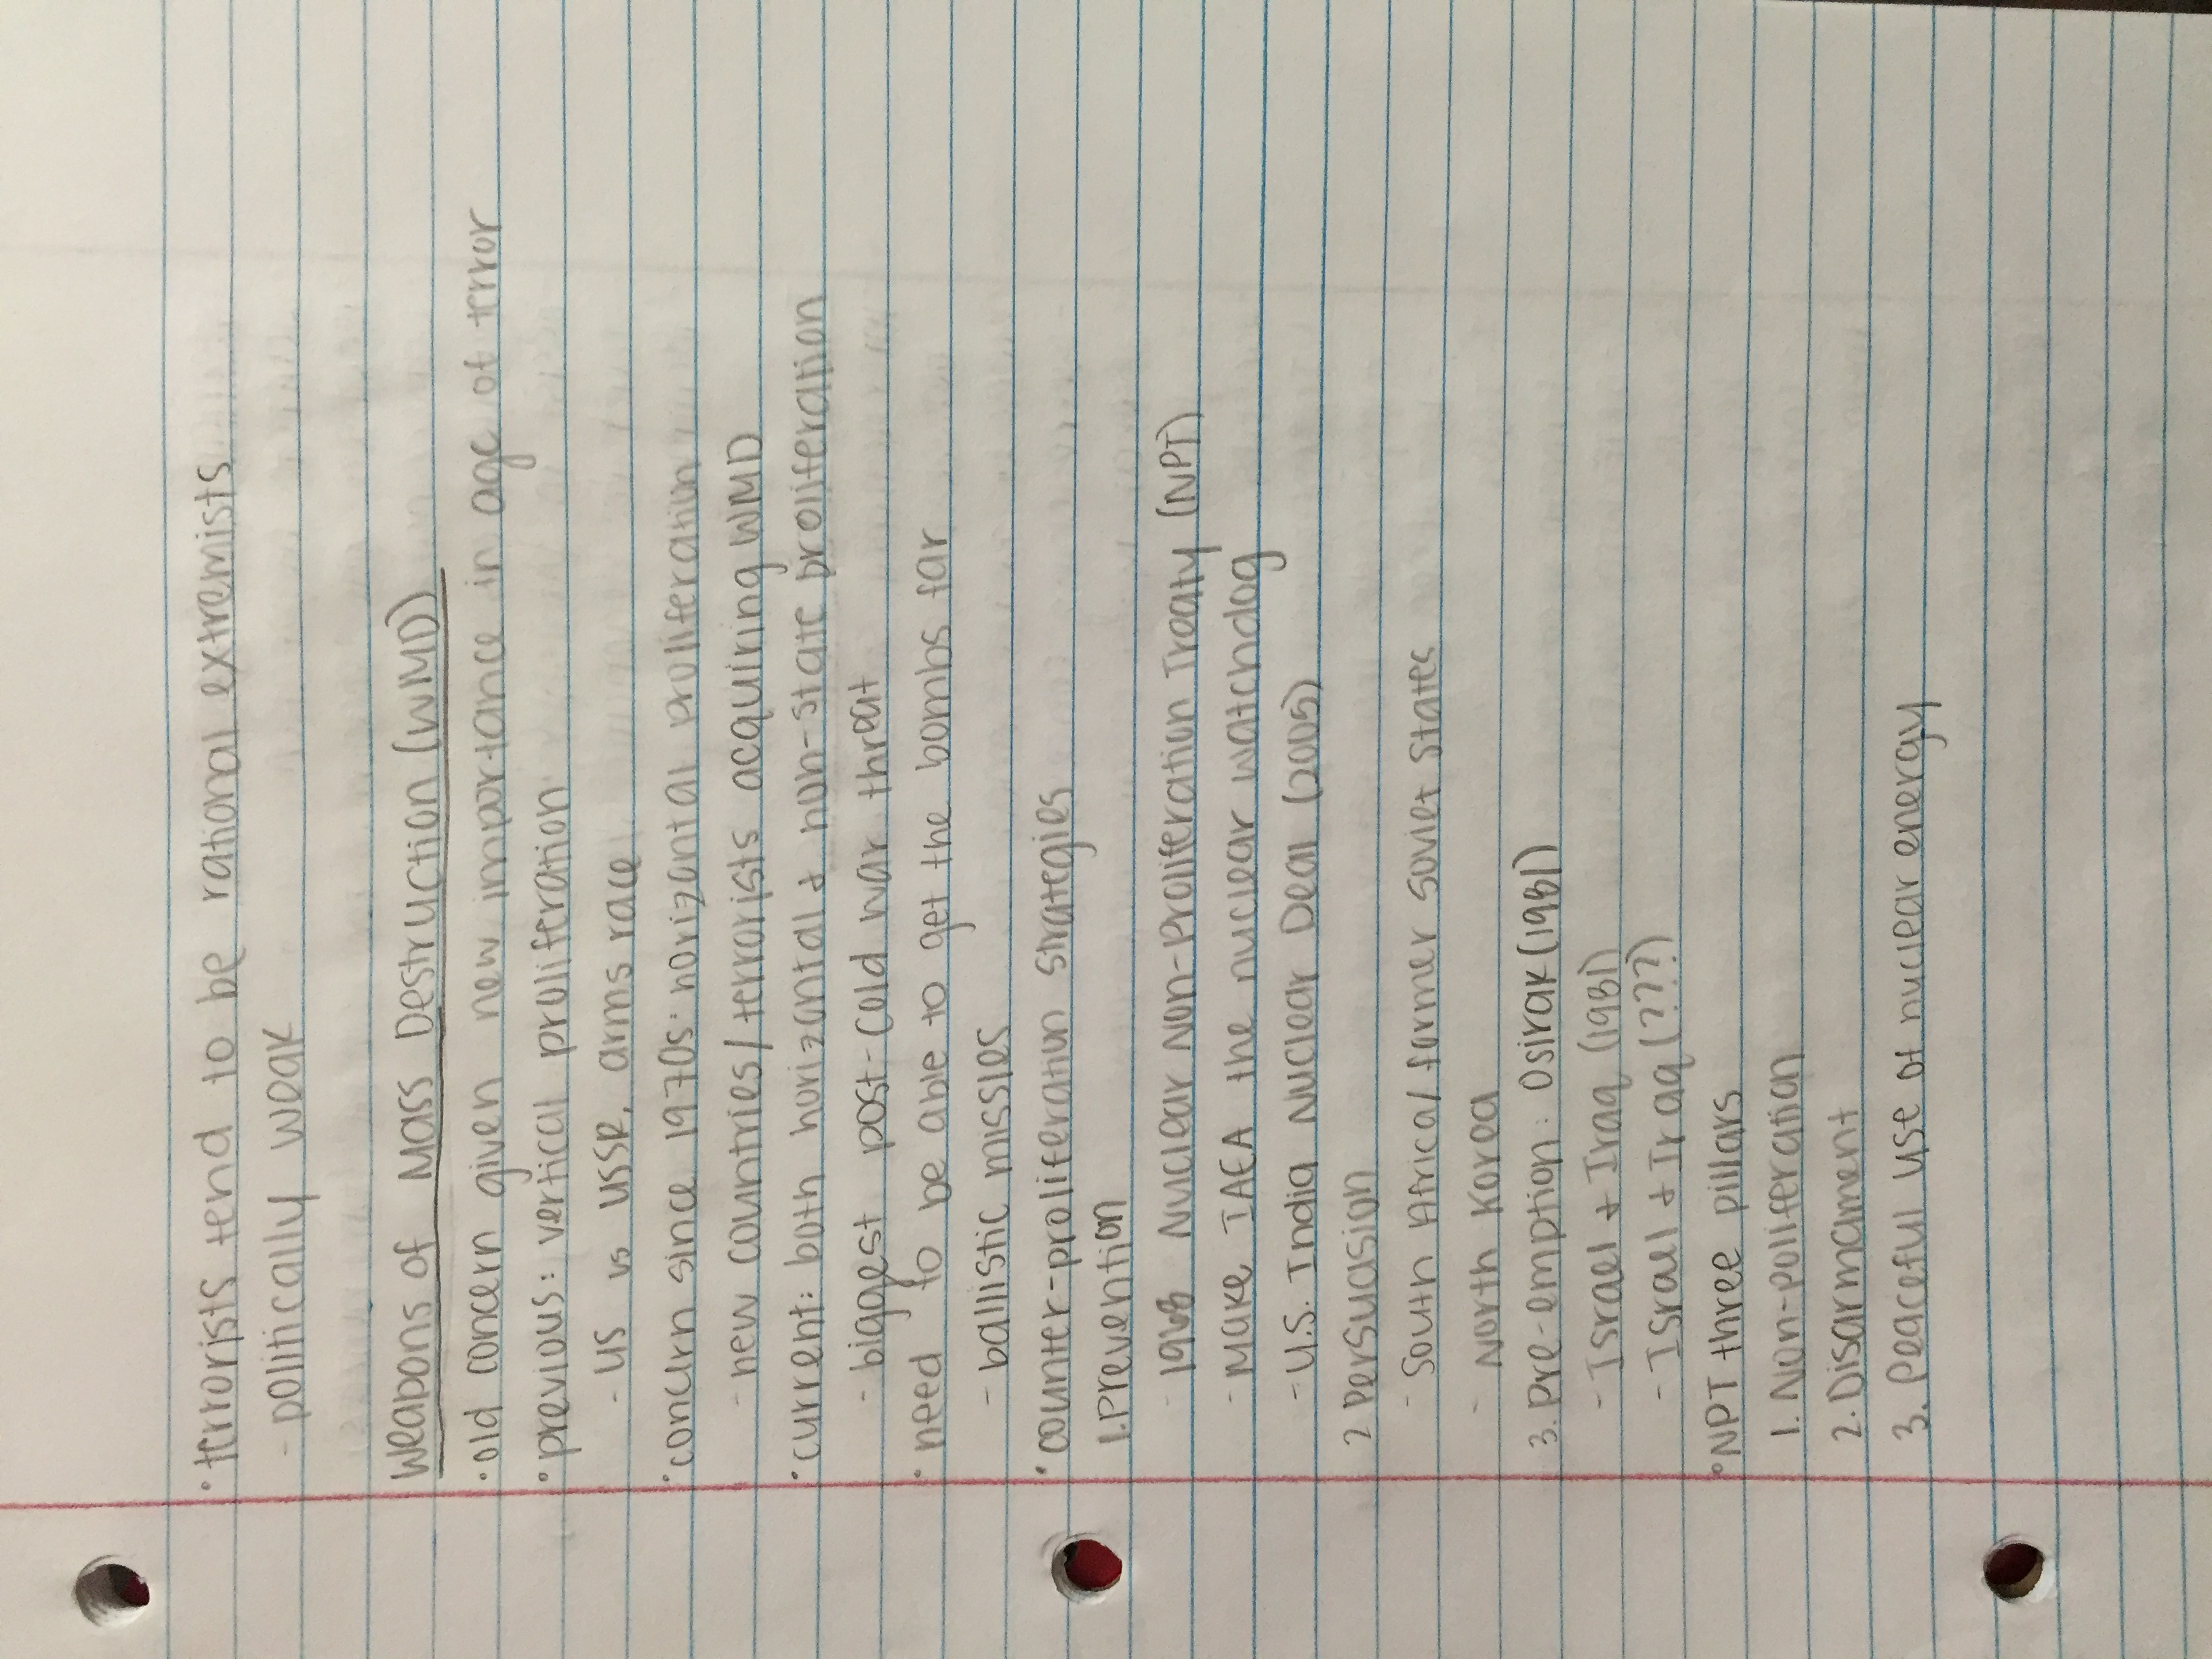 • terrorists tend to be rational extremists
- politically weak
Weapons of Mass Destruction (WMD)
• old concern given new importance in age of terror
• previous: vertical proliferation
- US vs USSR, arms race
• concurn since 1970s: horizontal proliferation
- new countries/terrorists acquiring WMD
• current: both horizontal & non-state proliferation
- biggest post-Cold war threat
• need to be able to get the bombs far
- ballistic missles
• counter-proliferation strategies
1. Prevention
- 1968 Nuclear Non-Proliferation Treaty (NPT)
- Make IAEA the nuclear watchdog
- U.S. India Nuclear Deal (2005)
2 Persuasion
- South Africa/former Soviet States
- North Korea
3. Pre-emption: Osirak (1981)
- Israel & Iraq (1981)
- Israel & Iraq (???)
• NPT three pillars
1. Non-poliferation
2. Disarmament
3. Peaceful use of nuclear energy